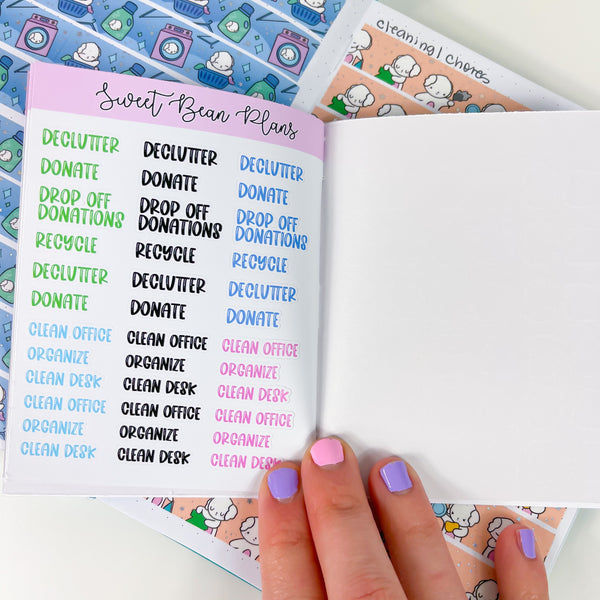 cleaning/chores
Sweet Bean Plans
DECLUTTER DECLUTTER DECLUTTER
DONATE DONATE DONATE
DROP OFF DROP OFF DROP OFF
DONATIONS DONATIONS DONATIONS
RECYCLE RECYCLE RECYCLE
DECLUTTER DECLUTTER DECLUTTER
DONATE DONATE DONATE
CLEAN OFFICE CLEAN OFFICE CLEAN OFFICE
ORGANIZE ORGANIZE ORGANIZE
CLEAN DESK CLEAN DESK CLEAN DESK
CLEAN OFFICE CLEAN OFFICE CLEAN OFFICE
ORGANIZE ORGANIZE ORGANIZE
CLEAN DESK CLEAN DESK CLEAN DESK